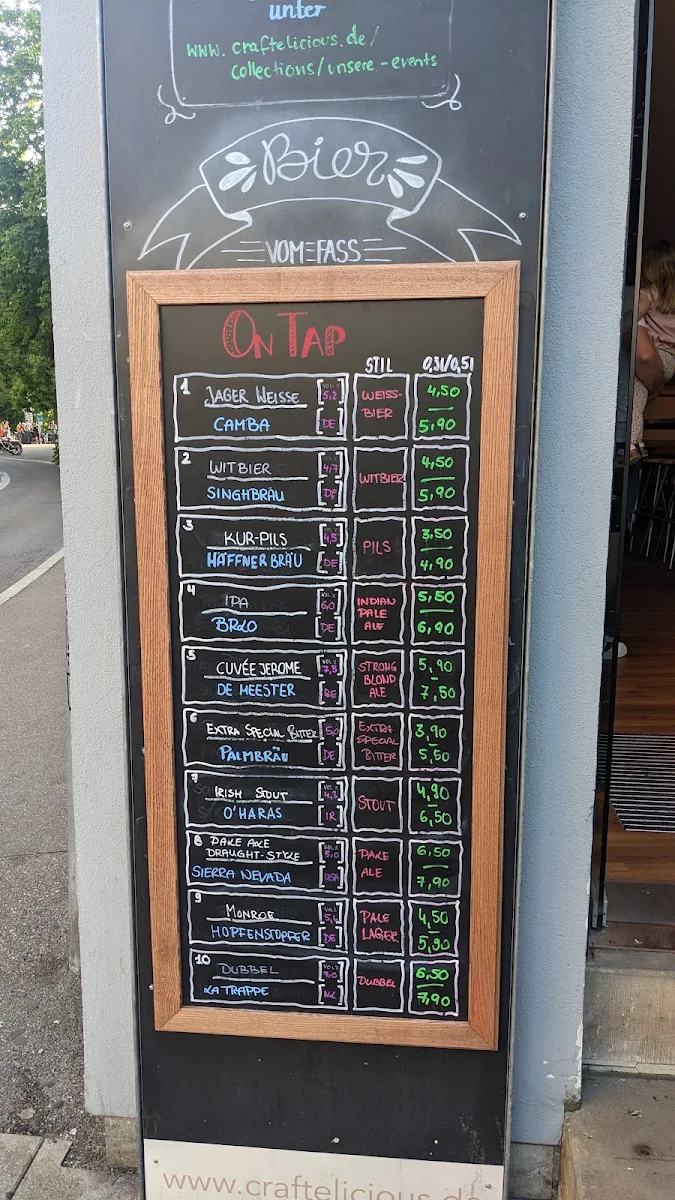 unter
www.craftelicious.de/
collections/unsere-events
Bier
VOM FASS
ON TAP
STIL 0,3l/0,5l
1 JAGER WEISSE VOL% 5,2 WEISS-BIER 4,50
CAMBA DE 5,90
2 WITBIER 4,7 WITBIER 4,50
SINGHBRÄU DE 5,90
3 KUR-PILS 4,5 PILS 3,50
HÄFFNER BRÄU DE 4,90
4 IPA VOL% 6,0 INDIAN PALE ALE 5,50
BRLO DE 6,90
5 CUVÉE JEROME VOL% 7,5 STRONG BLOND ALE 5,90
DE MEESTER BE 7,50
6 EXTRA SPECIAL BITTER 5,0 EXTRA SPECIAL BITTER 3,90
PALMBRÄU DE 5,50
7 IRISH STOUT VOL% 4,3 STOUT 4,90
O'HARAS IR 6,50
8 PALE ALE
DRAUGHT-STYLE VOL% 5,0 PALE ALE 6,50
SIERRA NEVADA USA 7,90
9 MONROE VOL% PALE LAGER 4,50
HOPFENSTOPFER DE 5,90
10 DUBBEL VOL% 7,0 DUBBEL 6,50
LA TRAPPE NL 7,90
www.craftelicious.de